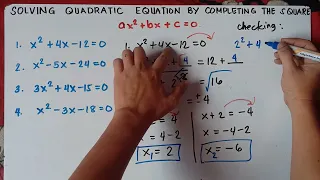 SOLVING QUADRATIC EQUATION BY COMPLETING THE SQUARE
ax²+bx+c=0
checking:
1. x²+4x-12=0
2. x²-5x-24=0
3. 3x²+4x-15=0
4. x²-3x-18=0
1. x²+4x-12=0
4 = 12 + 4
√16
± 4
x + 2 = -4
x = 4-2
x = -4-2
x₁= 2
x₂= -6
2²+4